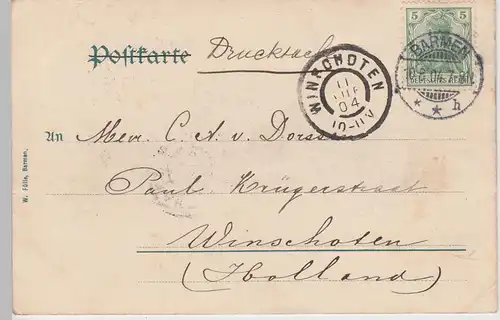 Postkarte Drucksach
5
BARMEN
h
WINSCHOTEN
11
04
10-11V
An Mevr. C. A. v. Dorss
Paul Krügerstraat
Winschoten
(Holland)
W. Fülle, Barmen.